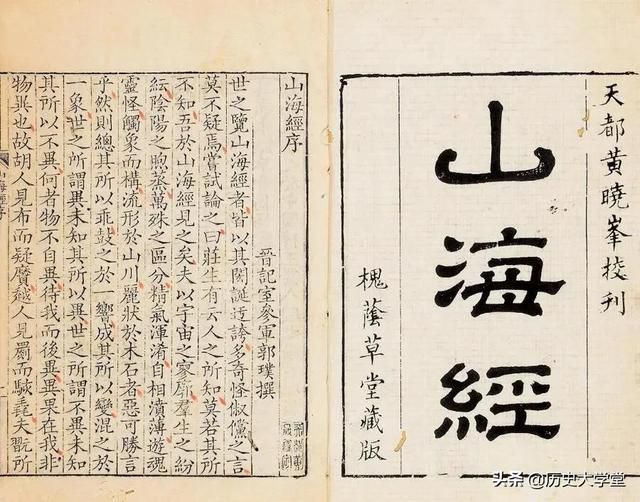 天都黃曉峯校刊
山海經
槐蔭草堂藏版
山海經序
晉記室參軍郭璞撰
世之覽山海經者皆以其閎誕迂誇多奇怪俶儻之言
莫不疑焉嘗試論之曰莊生有云人之所知莫若其所
不知吾於山海經見之矣夫以宇宙之寥廓羣生之紛
紜陰陽之煦蒸萬殊之區分精氣渾淆自相濆薄遊魂
靈怪觸象而構流形於山川麗狀於木石者惡可勝言
乎然則總其所以乖鼓之於一響成其所以變混之於
一象世之所謂異未知其所以異世之所謂不異未知
其所以不異何者物不自異待我而後異異果在我非
物異也故胡人見布而疑黂越人見罽而駭毳夫翫所
山海經序
头条 @历史大学堂